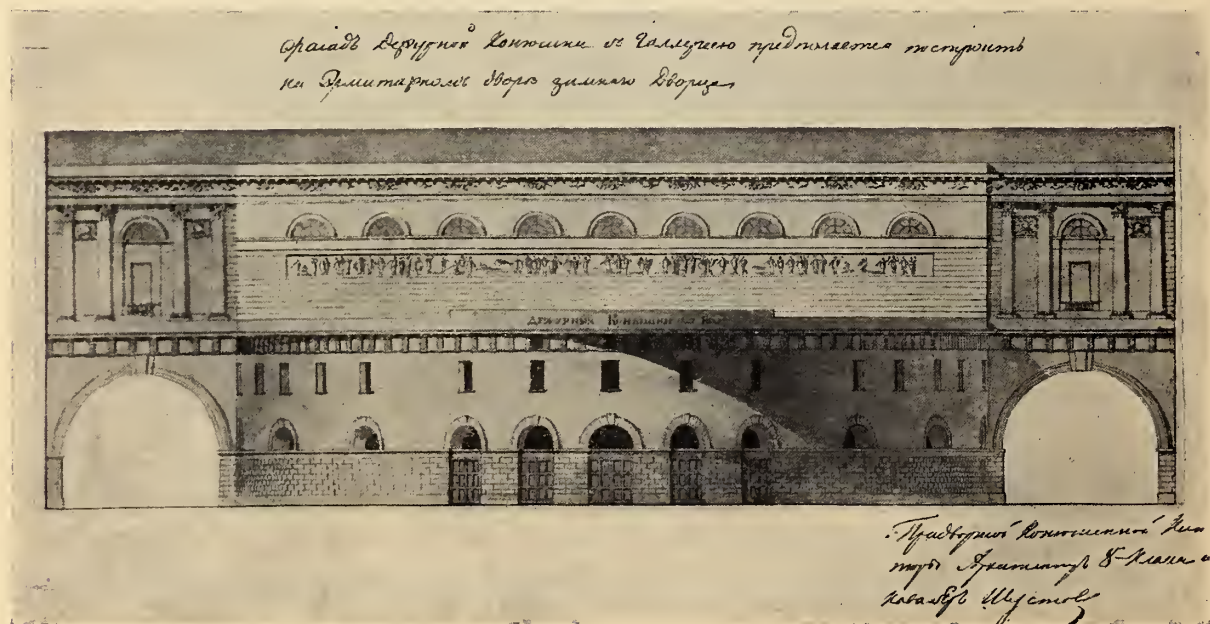 Фасадъ Дежурной Конюшни съ Галлереею предполагается построить
на Эрмитажномъ дворѣ зимняго Дворца
Дежурныя Конюшни
Придворной Конюшенной Кон
торы Архитекторъ 8-Класа и
Кавалеръ Шустовъ